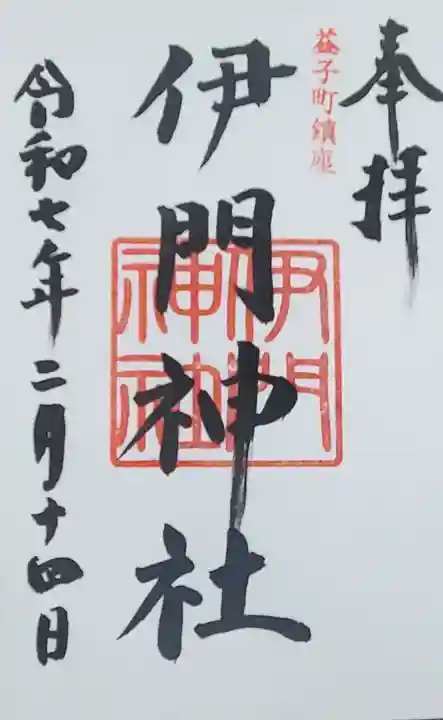 奉拝
益子町鎮座
伊門神社
伊門
神社
令和七年二月十四日